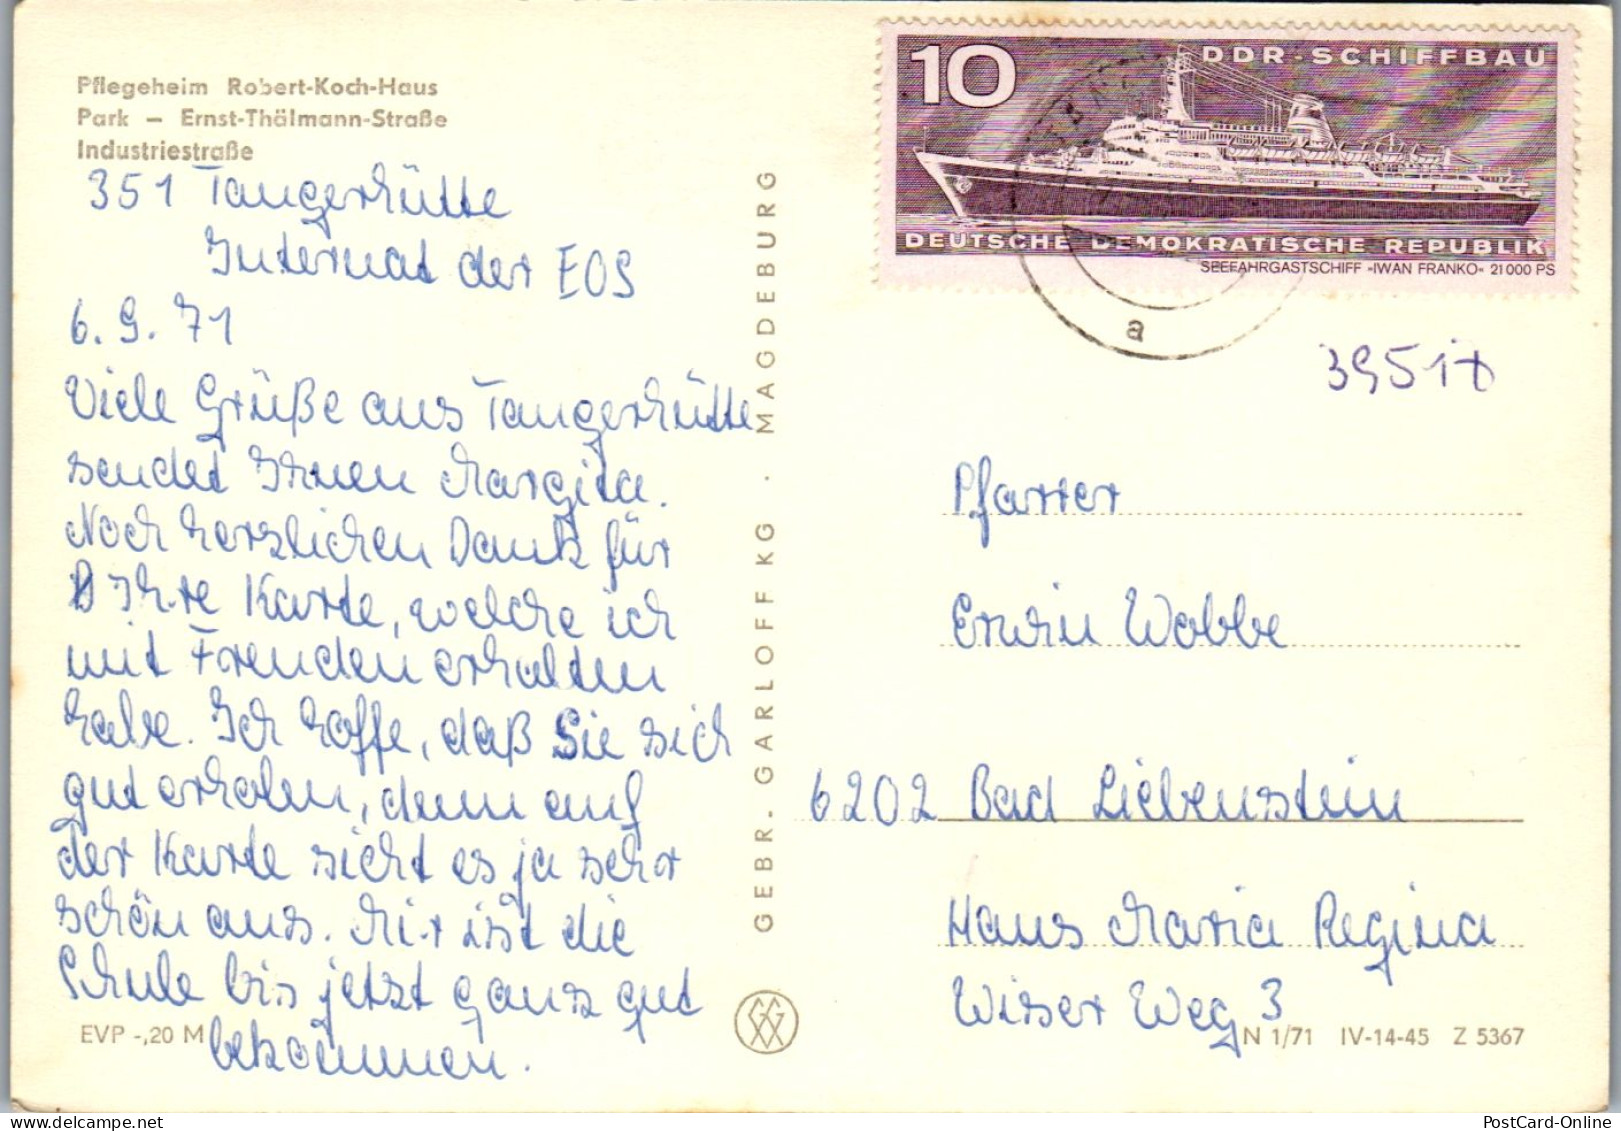 Pflegeheim Robert-Koch-Haus
Park – Ernst-Thälmann-Straße
Industriestraße
351 Tangerhütte
Internat der EOS
6. 9. 71
Viele Grüße aus Tangerhütte
sendet Ihnen Margita.
Noch herzlichen Dank für
Ihre Karte, welche ich
mit Freuden erhalten
habe. Ich hoffe, daß Sie sich
gut erholen, denn auf
der Karte sieht es ja sehr
schön aus. Mir ist die
Schule bis jetzt ganz gut
bekommen.
EVP -,20 M
GEBR. GARLOFF KG · MAGDEBURG
10
DDR-SCHIFFBAU
DEUTSCHE DEMOKRATISCHE REPUBLIK
SEEFAHRGASTSCHIFF »IWAN FRANKO« 21000 PS
a
Pfarrer
Erwin Wobbe
6202 Bad Liebenstein
Haus Maria Regina
Wiser Weg 3
N 1/71 IV-14-45 Z 5367
PostCard-Online